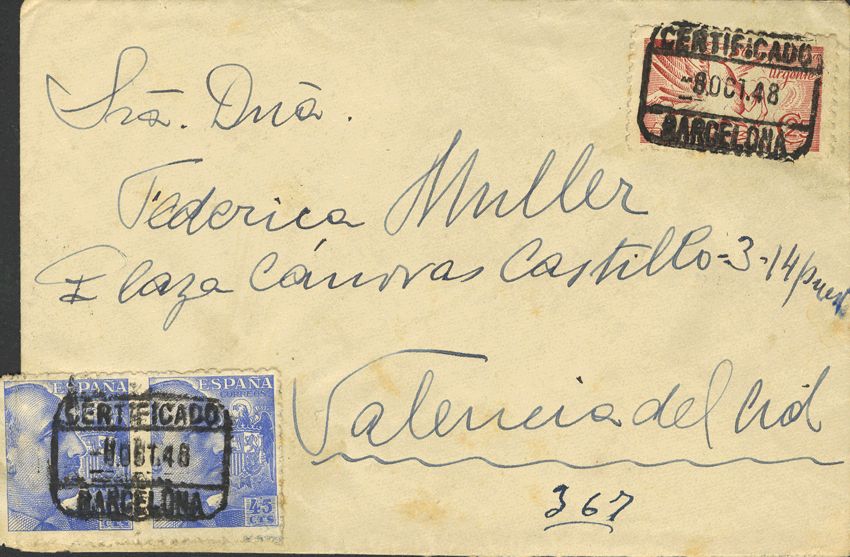 CERTIFICADO
urgente
8.OCT.48
BARCELONA
Srã. Dnã.
Federica Muller
Plaza Cánovas Castillo-3-14/puert
Valencia del Cid
367
ESPAÑA ESPAÑA
CORREOS
CERTIFICADO
OCT.48
BARCELONA
45
CTS CTS